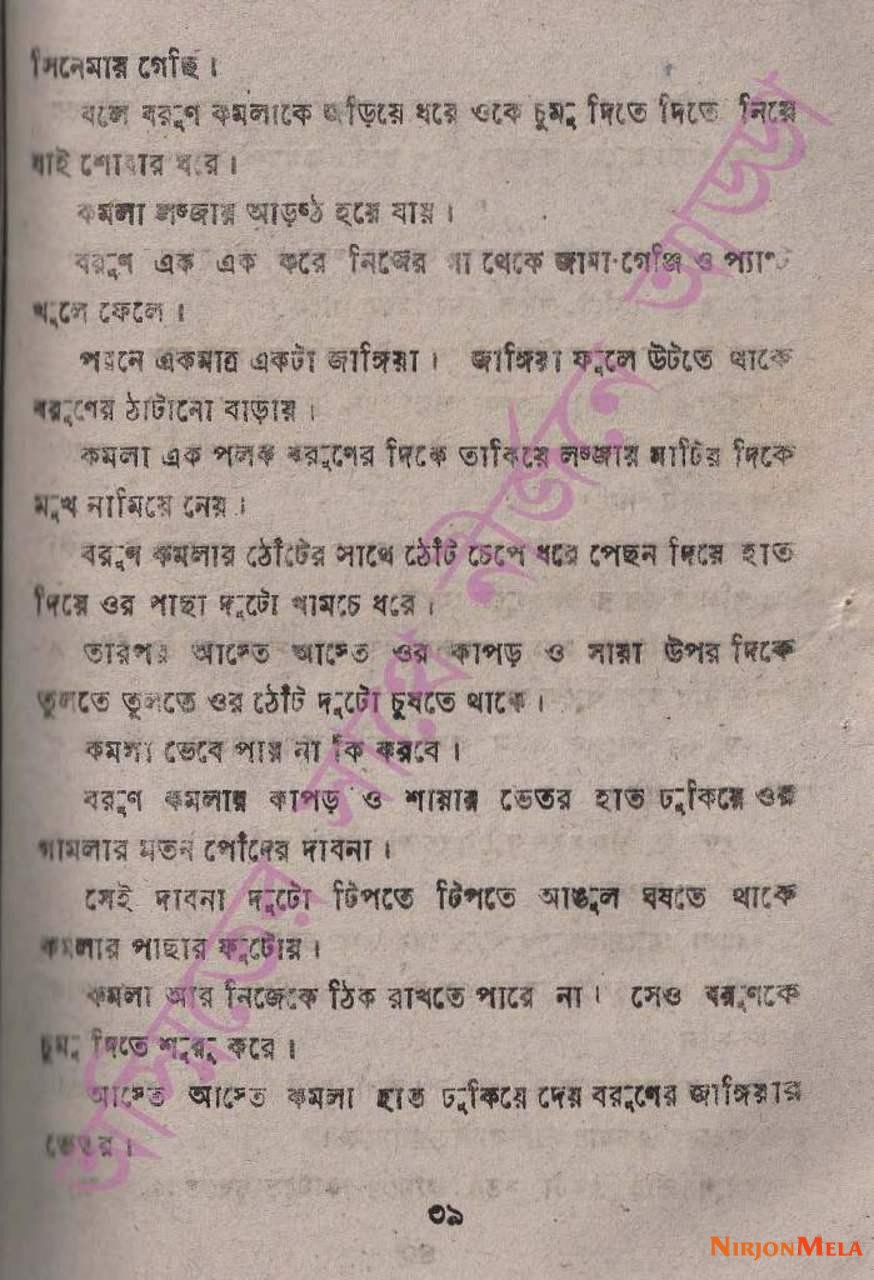 সিনেমায় গেছি।
বলে বরুণ কমলাকে জড়িয়ে ধরে ওকে চুমু দিতে দিতে নিয়ে
যাই শোবার ঘরে।
কমলা লজ্জায় আড়ষ্ঠ হয়ে যায়।
বরুণ এক এক করে নিজের গা থেকে জামা-গেঞ্জি ও প্যাণ্ট
খুলে ফেলে।
পরনে একমাত্র একটা জাঙ্গিয়া। জাঙ্গিয়া ফুলে উটতে থাকে
বরুণের ঠাটানো বাড়ায়।
কমলা এক পলক বরুণের দিকে তাকিয়ে লজ্জায় মাটির দিকে
মুখ নামিয়ে নেয়।
বরুণ কমলার ঠোঁটের সাথে ঠোঁট চেপে ধরে পেছন দিয়ে হাত
দিয়ে ওর পাছা দুটো খামচে ধরে।
তারপর আস্তে আস্তে ওর কাপড় ও সায়া উপর দিকে
তুলতে তুলতে ওর ঠোঁট দুটো চুষতে থাকে।
কমলা ভেবে পায় না কি করবে।
বরুণ কমলার কাপড় ও শায়ার ভেতর হাত ঢুকিয়ে ওর
গামলার মতন পোঁদের দাবনা।
সেই দাবনা দুটো টিপতে টিপতে আঙুল ঘষতে থাকে
কমলার পাছার ফুটোয়।
কমলা আর নিজেকে ঠিক রাখতে পারে না। সেও বরুণকে
চুমু দিতে শুরু করে।
আস্তে আস্তে কমলা হাত ঢুকিয়ে দেয় বরুণের জাঙ্গিয়ার
ভেতর।
৩৯
NIRJONMELA